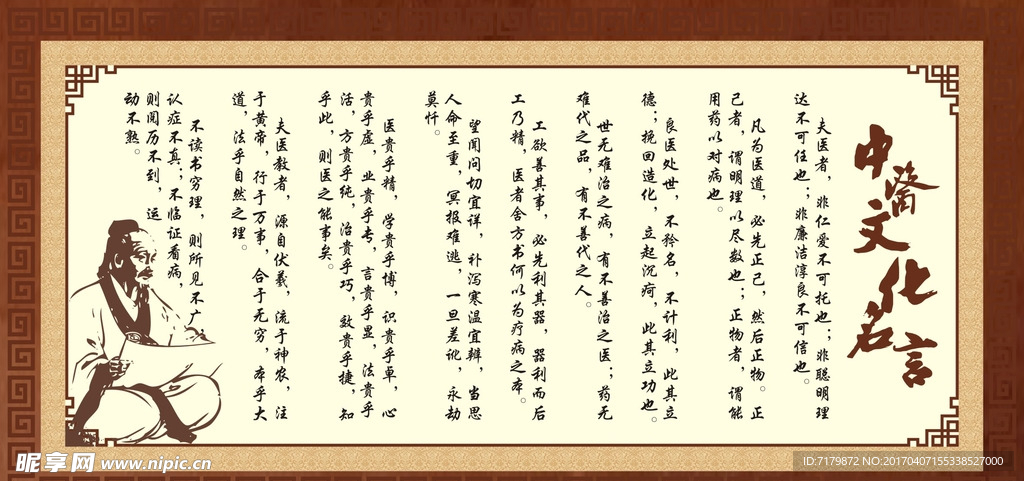 中醫文化名言
夫医者，非仁爱不可托也；非聪明理
达不可任也；非廉洁淳良不可信也。
凡为医道，必先正己，然后正物。正
己者，谓明理以尽数也；正物者，谓能
用药以对病也。
良医处世，不矜名，不计利，此其立
德；挽回造化，立起沉疴，此其立功也。
世无难治之病，有不善治之医；药无
难代之品，有不善代之人。
工欲善其事，必先利其器，器利而后
工乃精，医者舍方书何以为疗病之本。
望闻问切宜详，补泻寒温宜辩，当思
人命至重，冥报难逃，一旦差讹，永劫
莫忏。
医贵乎精，学贵乎博，识贵乎卓，心
贵乎虚，业贵乎专，言贵乎显，法贵乎
活，方贵乎纯，治贵乎巧，效贵乎捷，知
乎此，则医之能事矣。
夫医教者，源自伏羲，流于神农，注
于黄帝，行于万事，合于无穷，本乎大
道，法乎自然之理。
不读书穷理，则所见不广，
认症不真；不临证看病，
则阅历不到，运
动不熟。
昵享网 www.nipic.cn
ID:7179872 NO:20170407155338527000